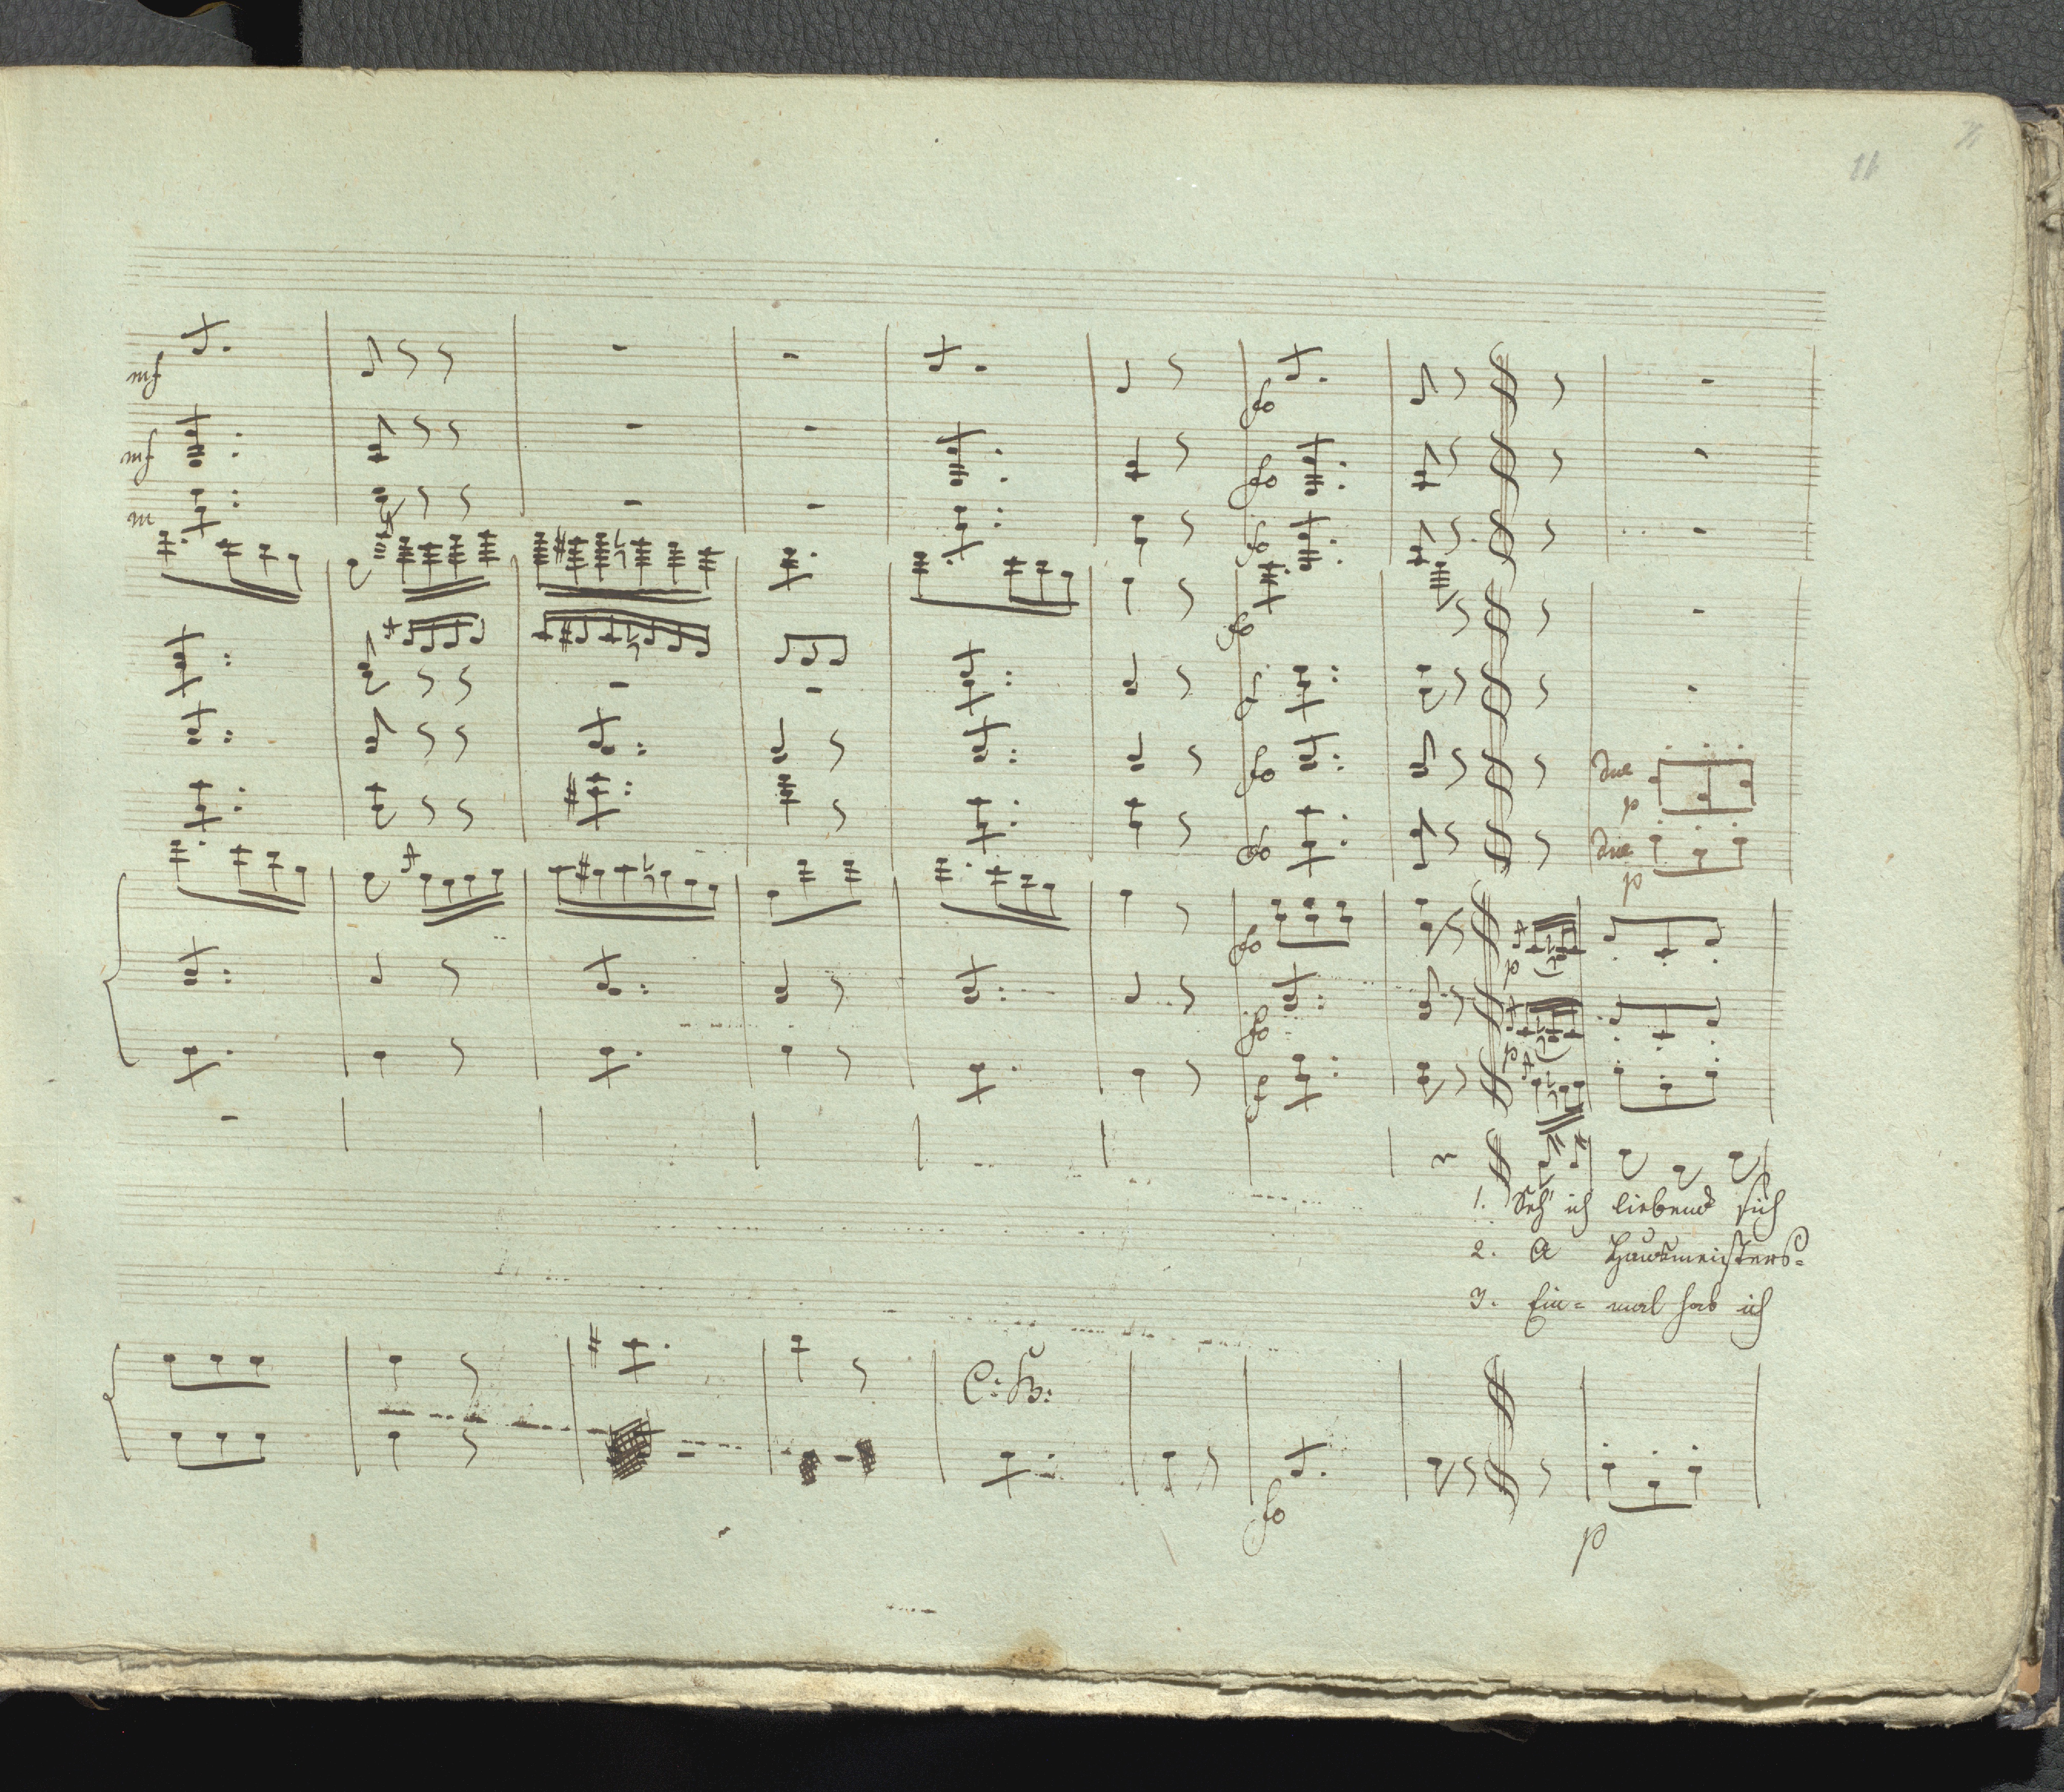 11
mf
mf
fo
fo
fo
fo
f
fo
due
p
fo
due
p
fo
p
fo
p
f
1. Seh' ich liebend sich
2. A Hausmeisters=
3. Ein= mal hab ich
C: B:
fo
p